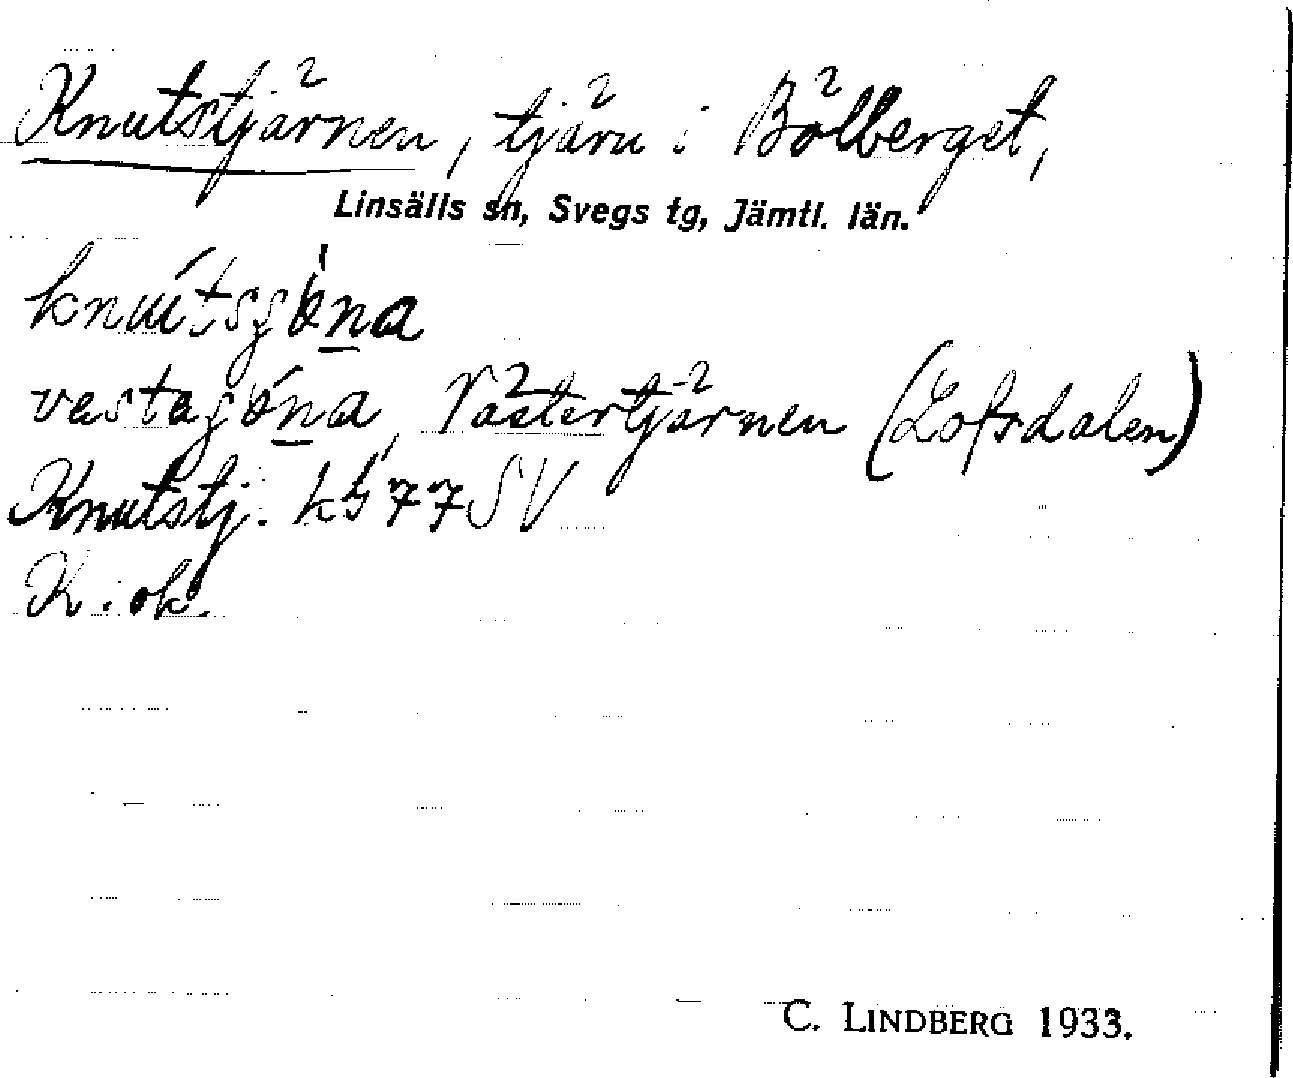 Knutstjärnen, tjärn i Bölberget,
Linsälls sn, Svegs tg, Jämtl. län.
Västertjärnen (Lofsdalen)
Knutstj. kbl 77 SV
K. ok.
C. LINDBERG 1933.